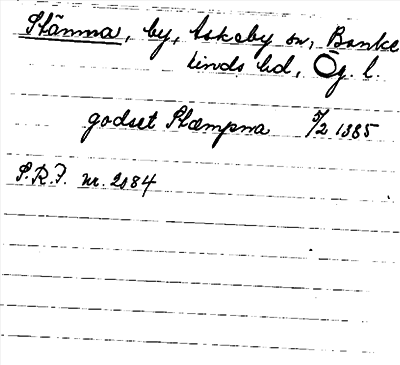 Stämma, by, Askeby sn, Banke
kinds hd, Ög. l.
godset Stæmpma 5/2 1385
S.R.P. nr. 2184